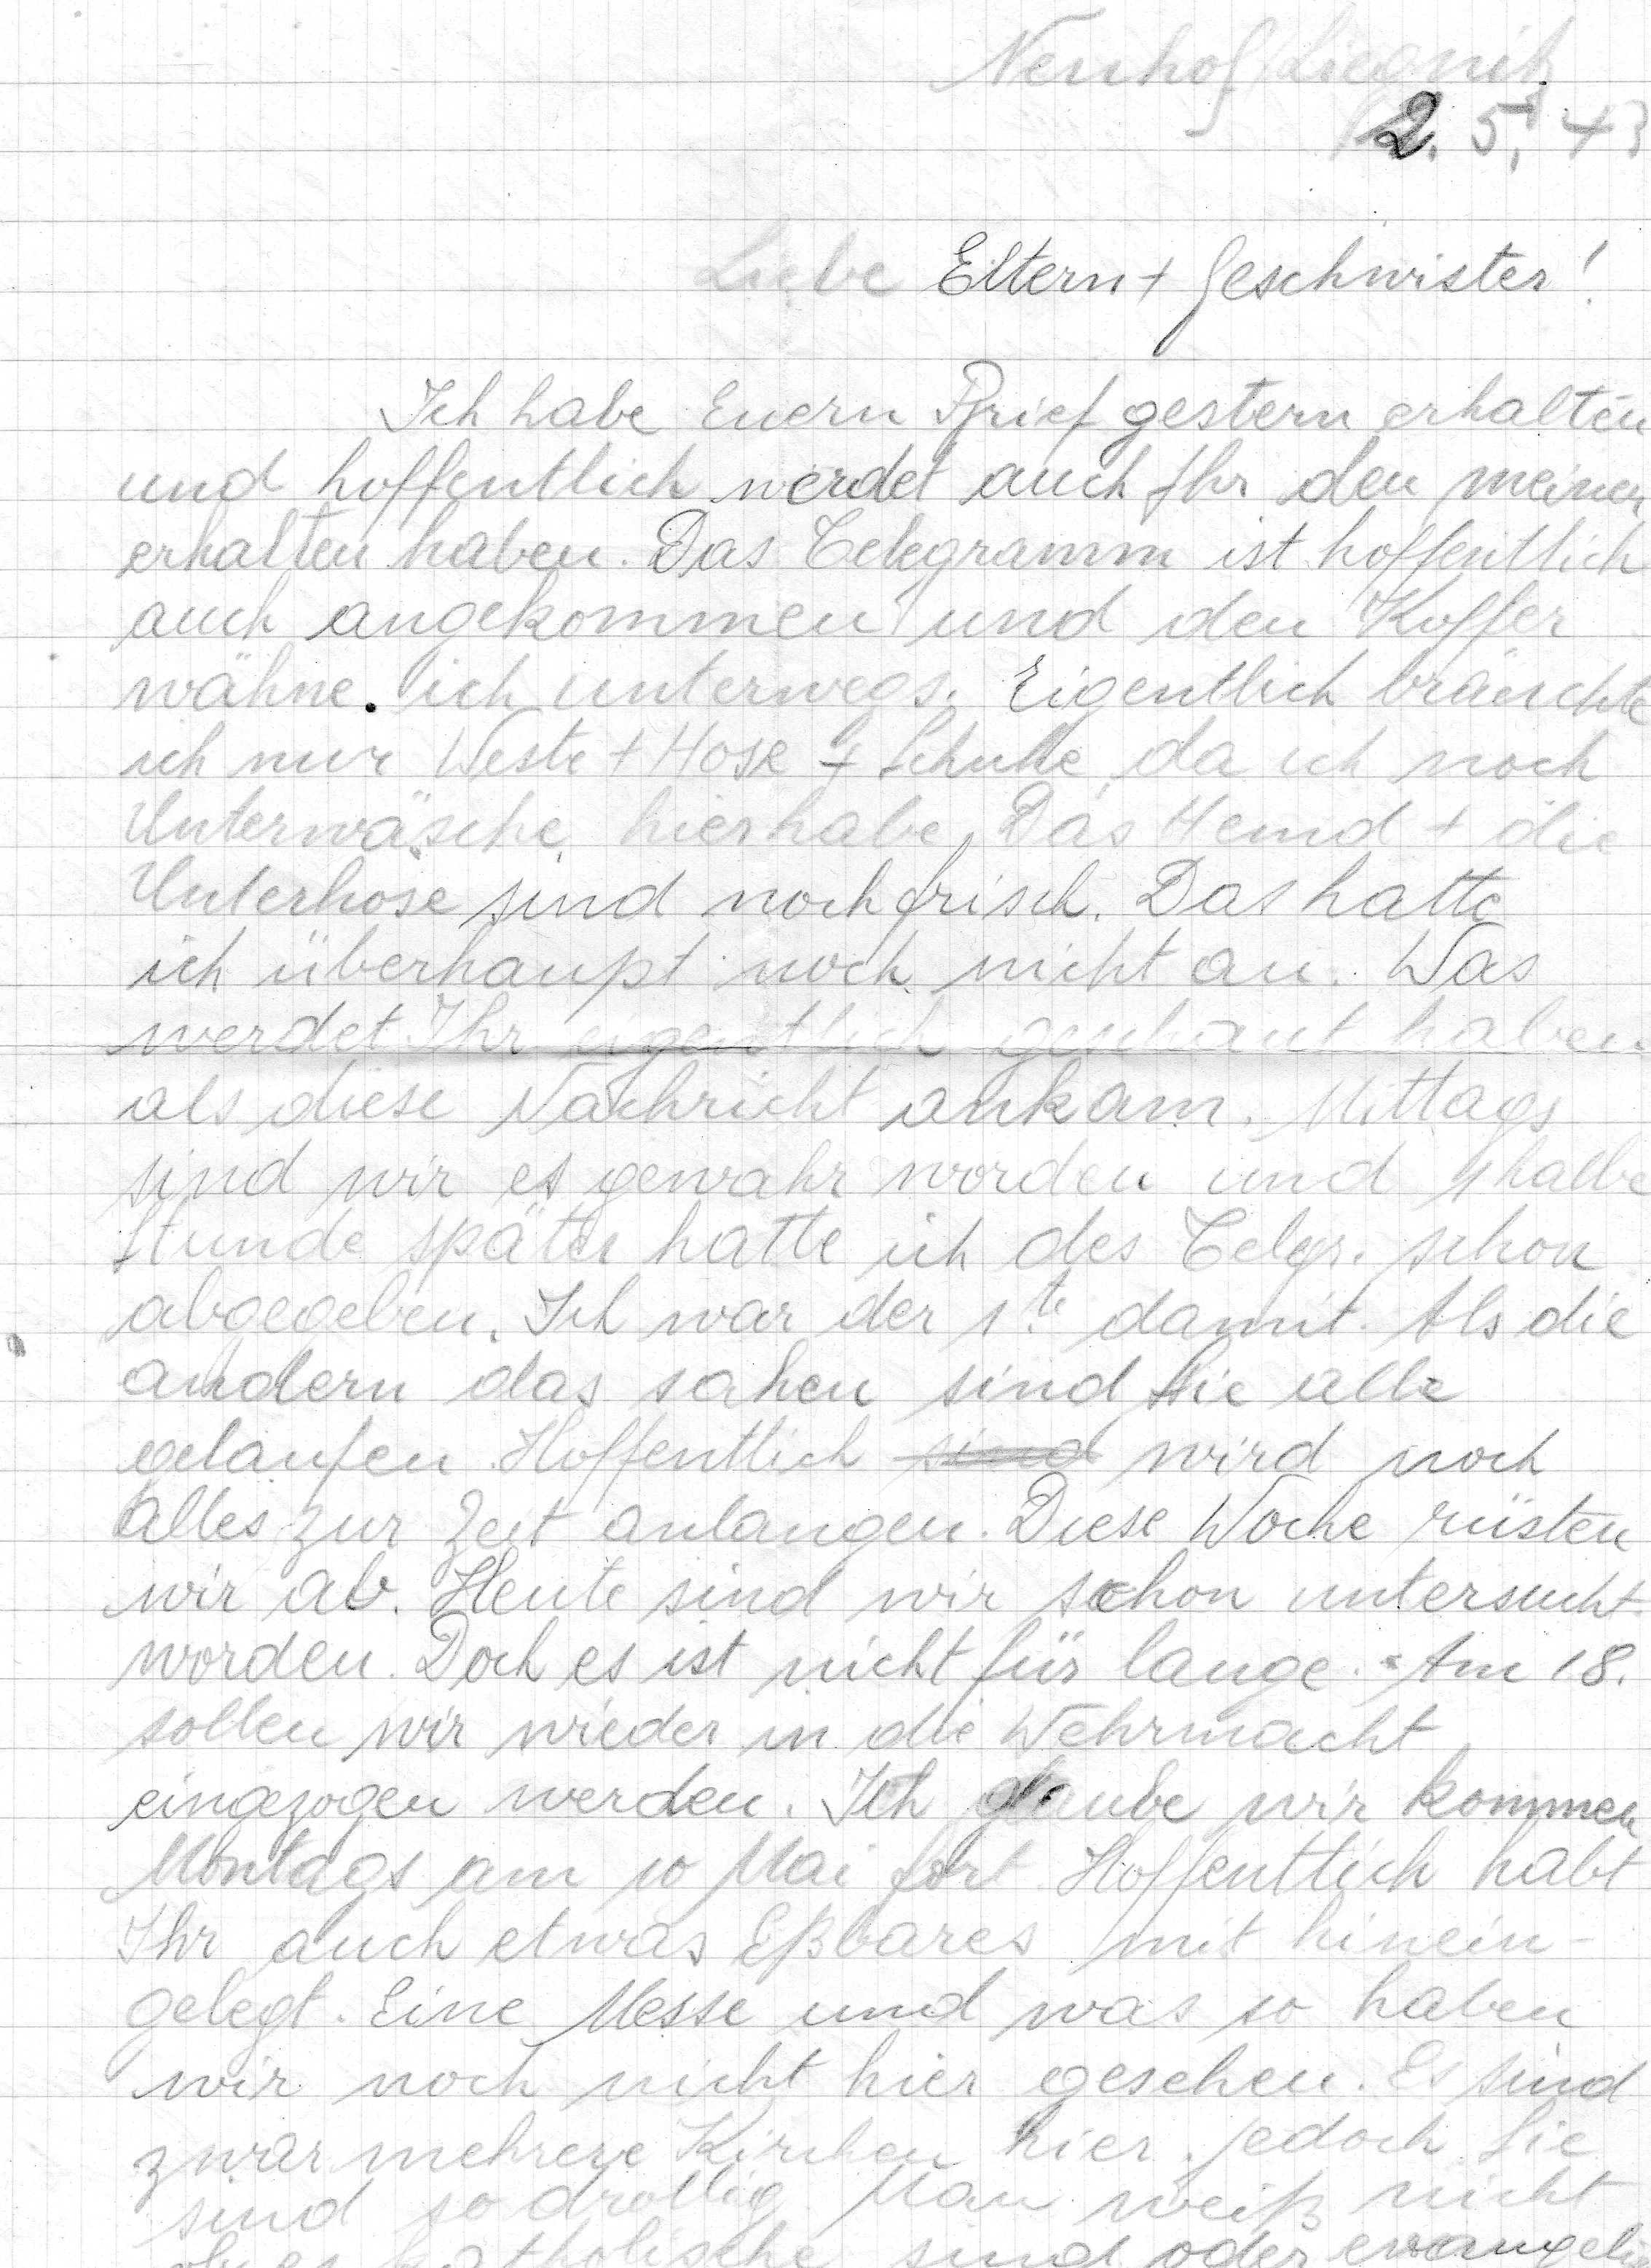 Neuhof/Liegnitz
2. 5. 43
Liebe Eltern + Geschwister!
Ich habe Euern Brief gestern erhalten
und hoffentlich werdet auch Ihr den meinen
erhalten haben. Das Telegramm ist hoffentlich
auch angekommen und den Koffer
wähne ich unterwegs. Eigentlich bräuchte
ich nur Weste + Hose + Schuhe, da ich noch
Unterwäsche hierhabe. Das Hemd + die
Unterhose sind noch frisch. Das hatte
ich überhaupt noch nicht an. Was
werdet Ihr eigentlich geschaut haben
als diese Nachricht ankam. Mittags
sind wir es gewahr worden und 1 halbe
Stunde später hatte ich des Telegr. schon
abgegeben. Ich war der 1te damit. Als die
andern das sahen sind sie alle
gelaufen. Hoffentlich sind wird noch
alles zur Zeit anlangen. Diese Woche rüsten
wir ab. Heute sind wir schon untersucht
worden. Doch es ist nicht für lange. Am 18.
sollen wir wieder in die Wehrmacht
eingezogen werden. Ich glaube wir kommen
Montags am 10 Mai fort. Hoffentlich habt
Ihr auch etwas Eßbares mit hinein-
gelegt. Eine Messe und was so haben
wir noch nicht hier gesehen. Es sind
zwar mehrere Kirchen hier. jedoch Sie
sind so drollig. Man weiß nicht
ob es katholische sind oder evangel